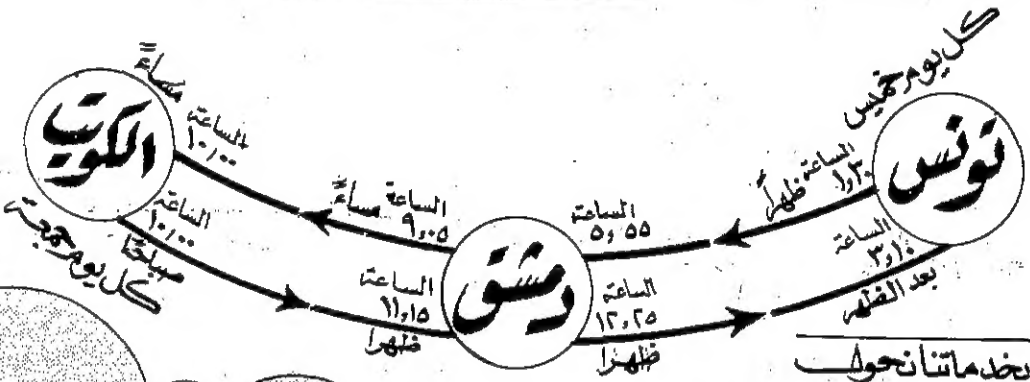 كل يوم خميس
تونس
الساعة
١,٣٠ ظهراً
الساعة
٣,١٠
بعد الظهر
الساعة
٥,٥٥
دمشق
الساعة
١٢,٢٥
ظهرا
الساعة
٩,٠٥ مساءً
الساعة
١١,١٥
ظهرا
الساعة
١٠,٠٠ مساءً
الكويت
الساعة
١٠,٠٠
صباحًا
كل يوم جمعة
بخدماتنا نحول